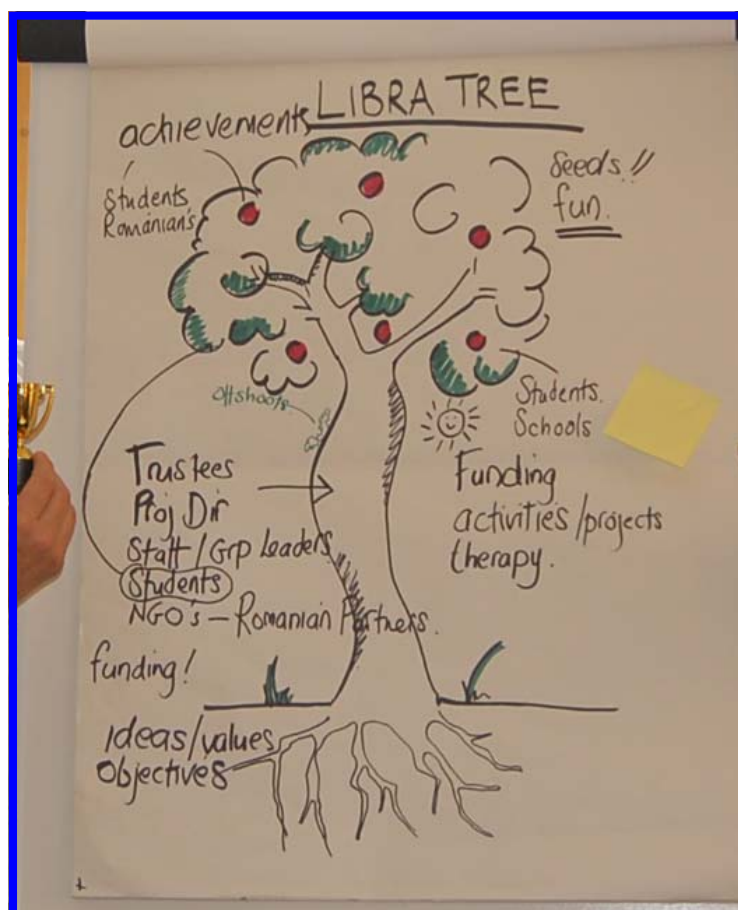 LIBRA TREE
achievements
Students,
Romanian's
Seeds!!
fun.
Students.
Schools
Offshoots
Trustees
Proj Dir
Staff/Grp Leaders
Students
NGO's – Romanian Partners.
Funding
activities/projects
therapy.
funding!
Ideas/values
Objectives